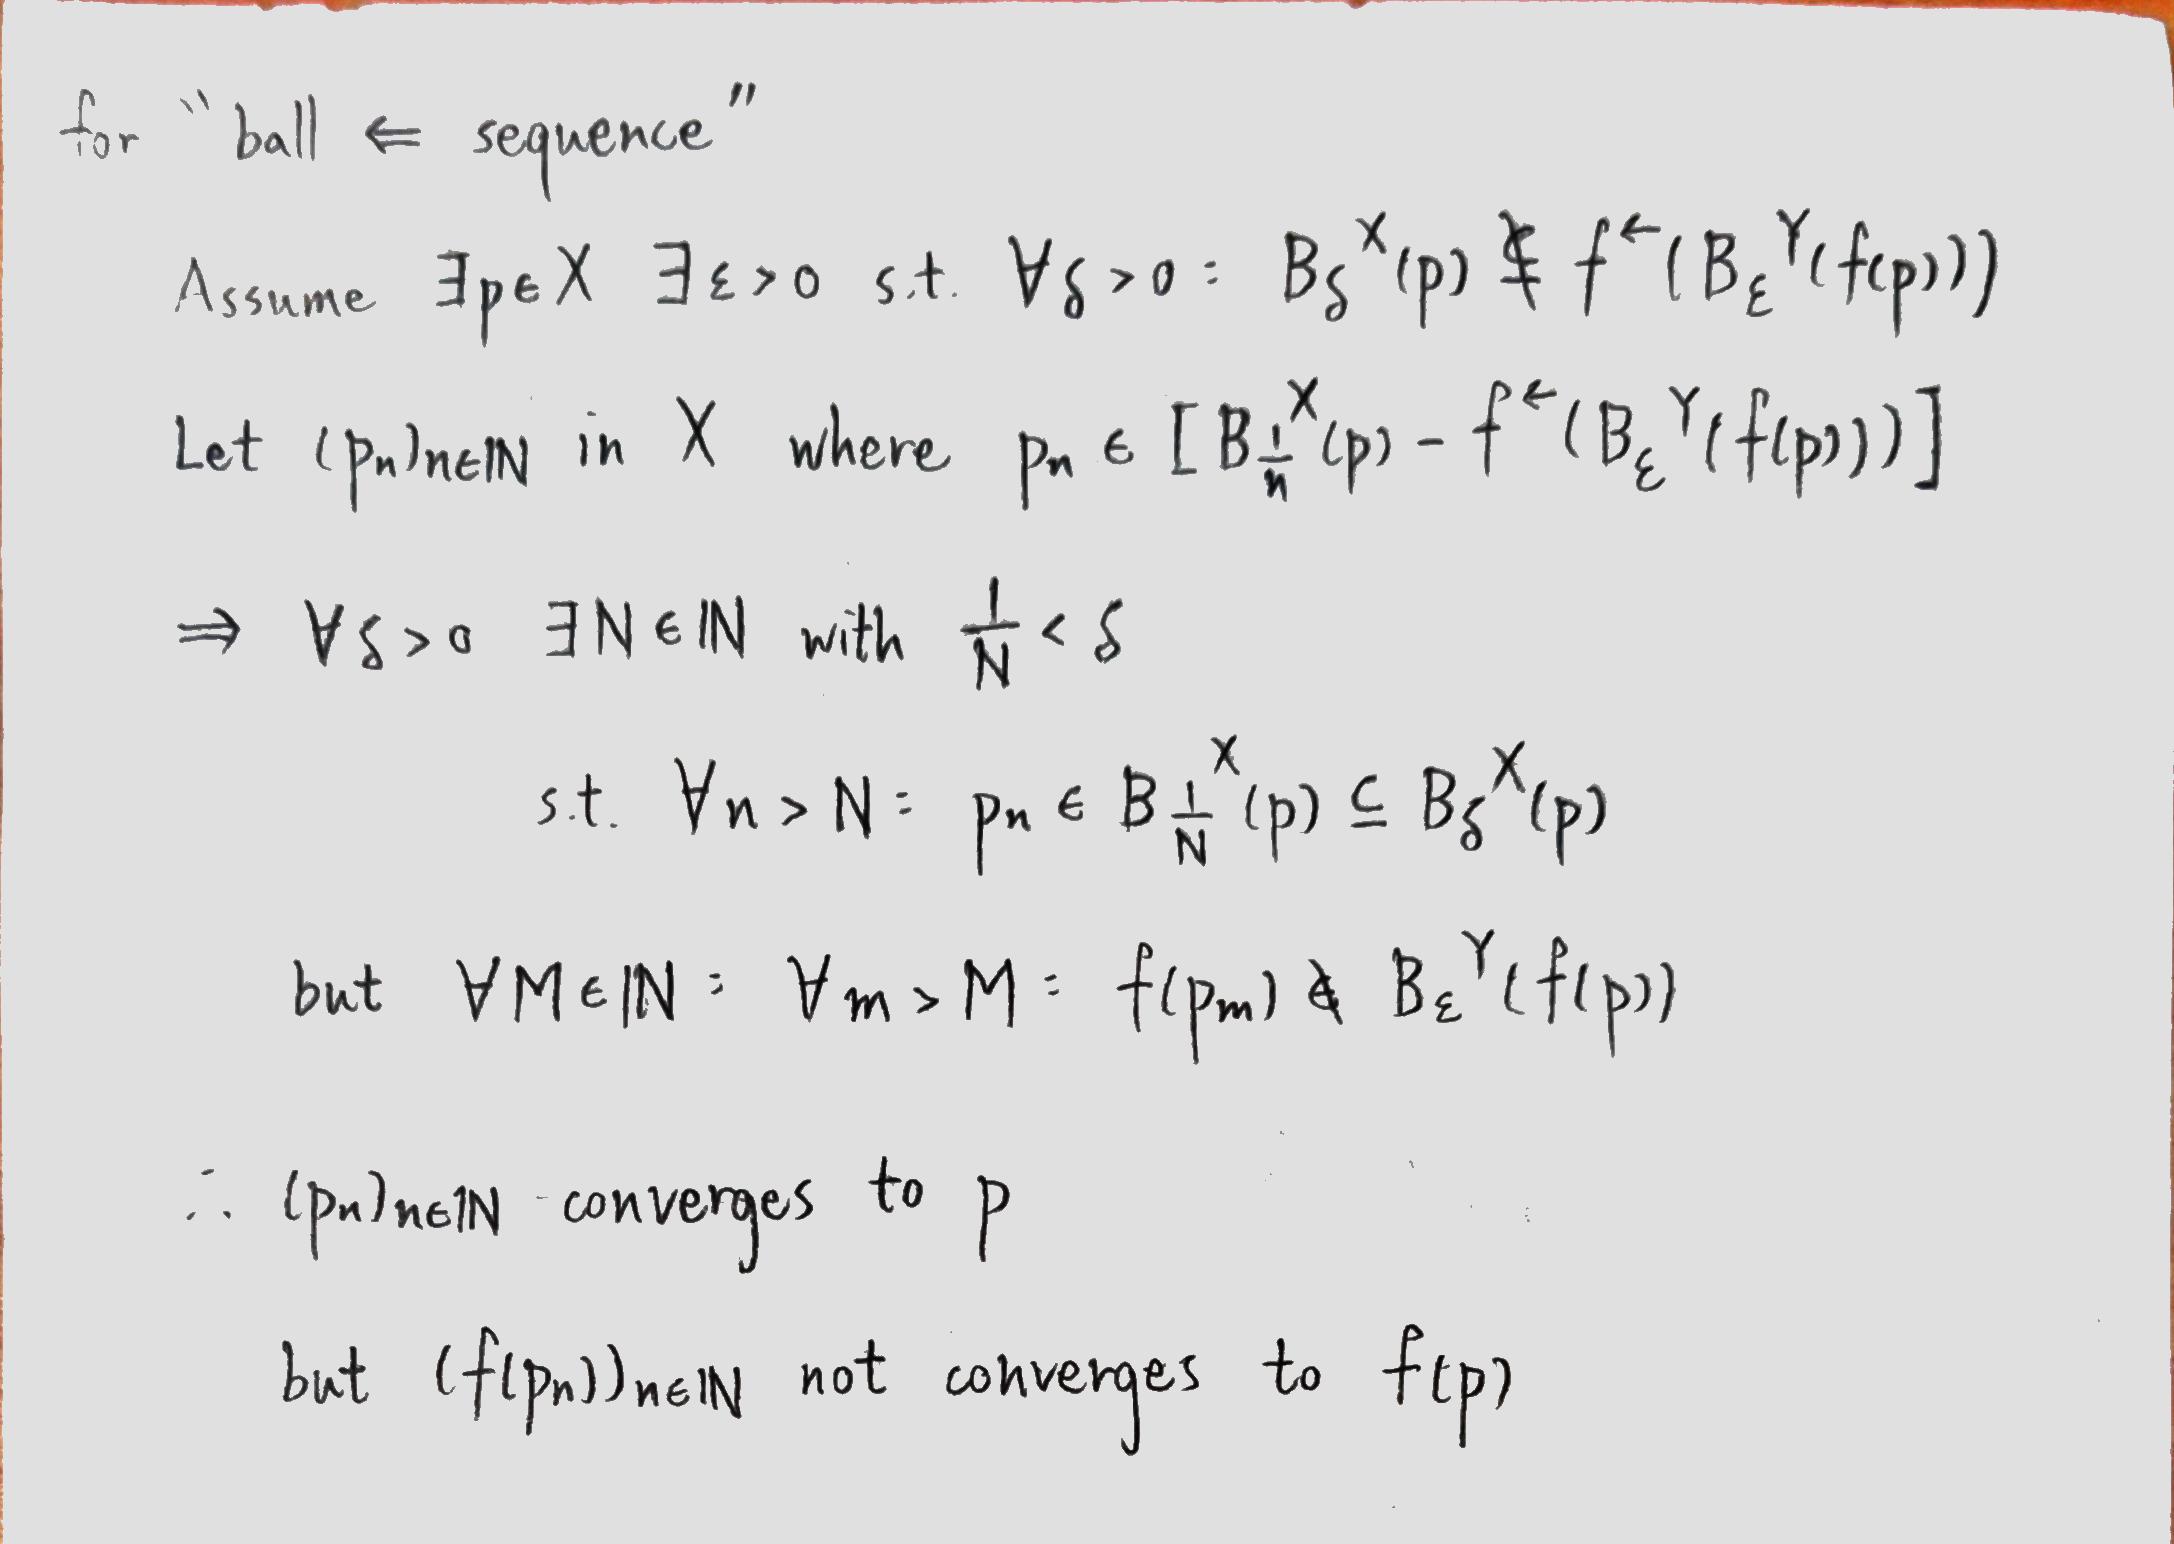 for "ball ⇐ sequence"
Assume ∃p∈X ∃ε>0 s.t. ∀δ>0: B_δ^X(p) ⊈ f^←(B_ε^Y(f(p)))
Let (p_n)_{n∈ℕ} in X where p_n ∈ [B_{1/n}^X(p) - f^←(B_ε^Y(f(p)))]
⇒ ∀δ>0 ∃N∈ℕ with 1/N < δ
s.t. ∀n>N: p_n ∈ B_{1/N}^X(p) ⊆ B_δ^X(p)
but ∀M∈ℕ: ∀m>M: f(p_m) ∉ B_ε^Y(f(p))
∴ (p_n)_{n∈ℕ} converges to p
but (f(p_n))_{n∈ℕ} not converges to f(p)